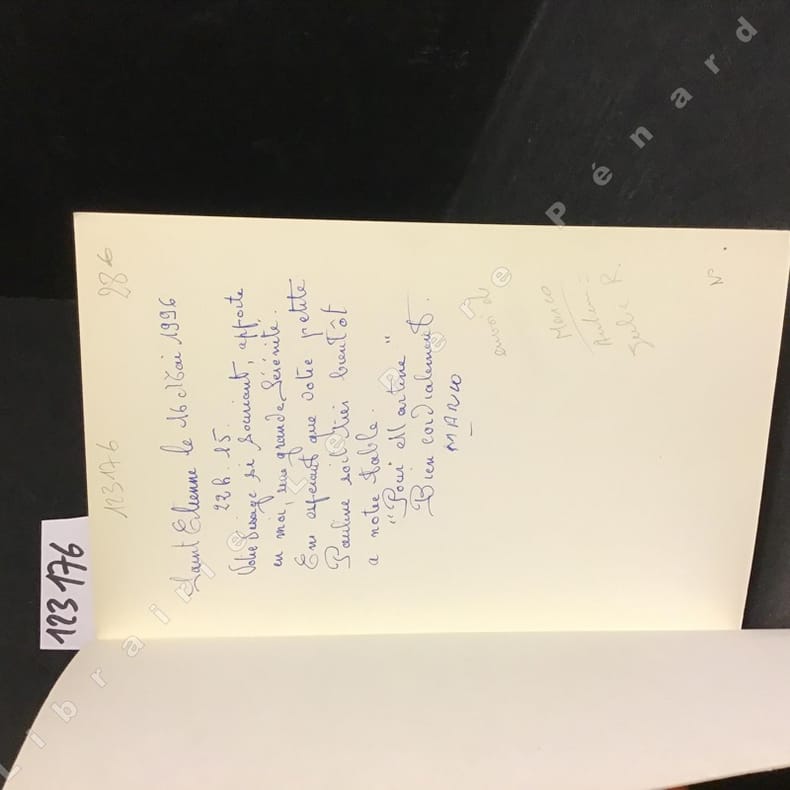 123176
28 €
Saint Etienne le 16 Mai 1996
22h.15.
Votre visage si souriant, apporte
en moi, une grande Sérénité.
En espérant que votre petite
Pauline soit très bientôt
a notre table.
"Pour Martine"
Bien cordialement.
MARCO
envoi de
Marco
N°
123176
Librairie Le Pénard